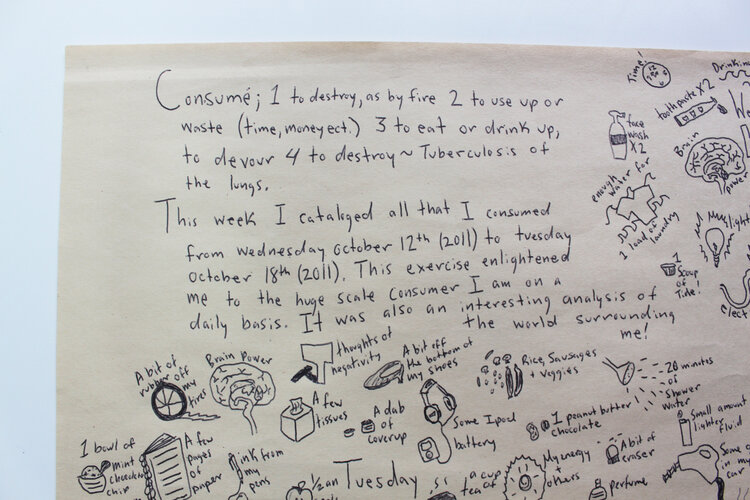 Consumé; 1 to destroy, as by fire 2 to use up or
waste (time, money ect.) 3 to eat or drink up,
to devour 4 to destroy ~ Tuberculosis of
the lungs.
This week I cataloged all that I consumed
from Wednesday October 12th (2011) to tuesday
October 18th (2011). This exercise enlightened
me to the huge scale consumer I am on a
daily basis. It was also an interesting analysis of
the world surrounding
me!
Time!
Drinking
toothpaste x2
face
wash
x2
We
Brain
power
enough
water for
1 load of
laundry
light
1
scoop
of
Tide!
elect
A bit of
rubber off
my
tires
Brain Power
thoughts of
negativity
A bit off
the bottom of
my shoes
Rice, Sausages
+ veggies
20 minutes
of
shower
water
A few
tissues
A dab
of
coverup
Some Ipod
battery
1 peanut butter
chocolate
Small amount
lighter
fluid
1 bowl of
mint
chocolate
chip
A few
pages
of
paper
ink from
my
pens
A bit of
eraser
1/2 an
Tuesday
a cup
tea of
My energy
+
others
perfume
in my
car